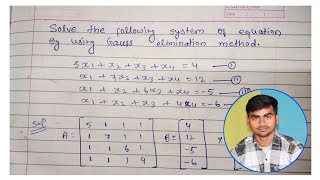 Solve the following system of equation
by using Gauss elimination method.
5x1 + x2 + x3 + x4 = 4 — (i)
x1 + 7x2 + x3 + x4 = 12 — (ii)
x1 + x2 + 6x3 + x4 = -5 — (iii)
x1 + x2 + x3 + 4x4 = -6
Sol
A = [ 5 1 1 1 B = [ 4
1 7 1 1 12
1 1 6 1 -5
1 1 1 4 ] -6 ]